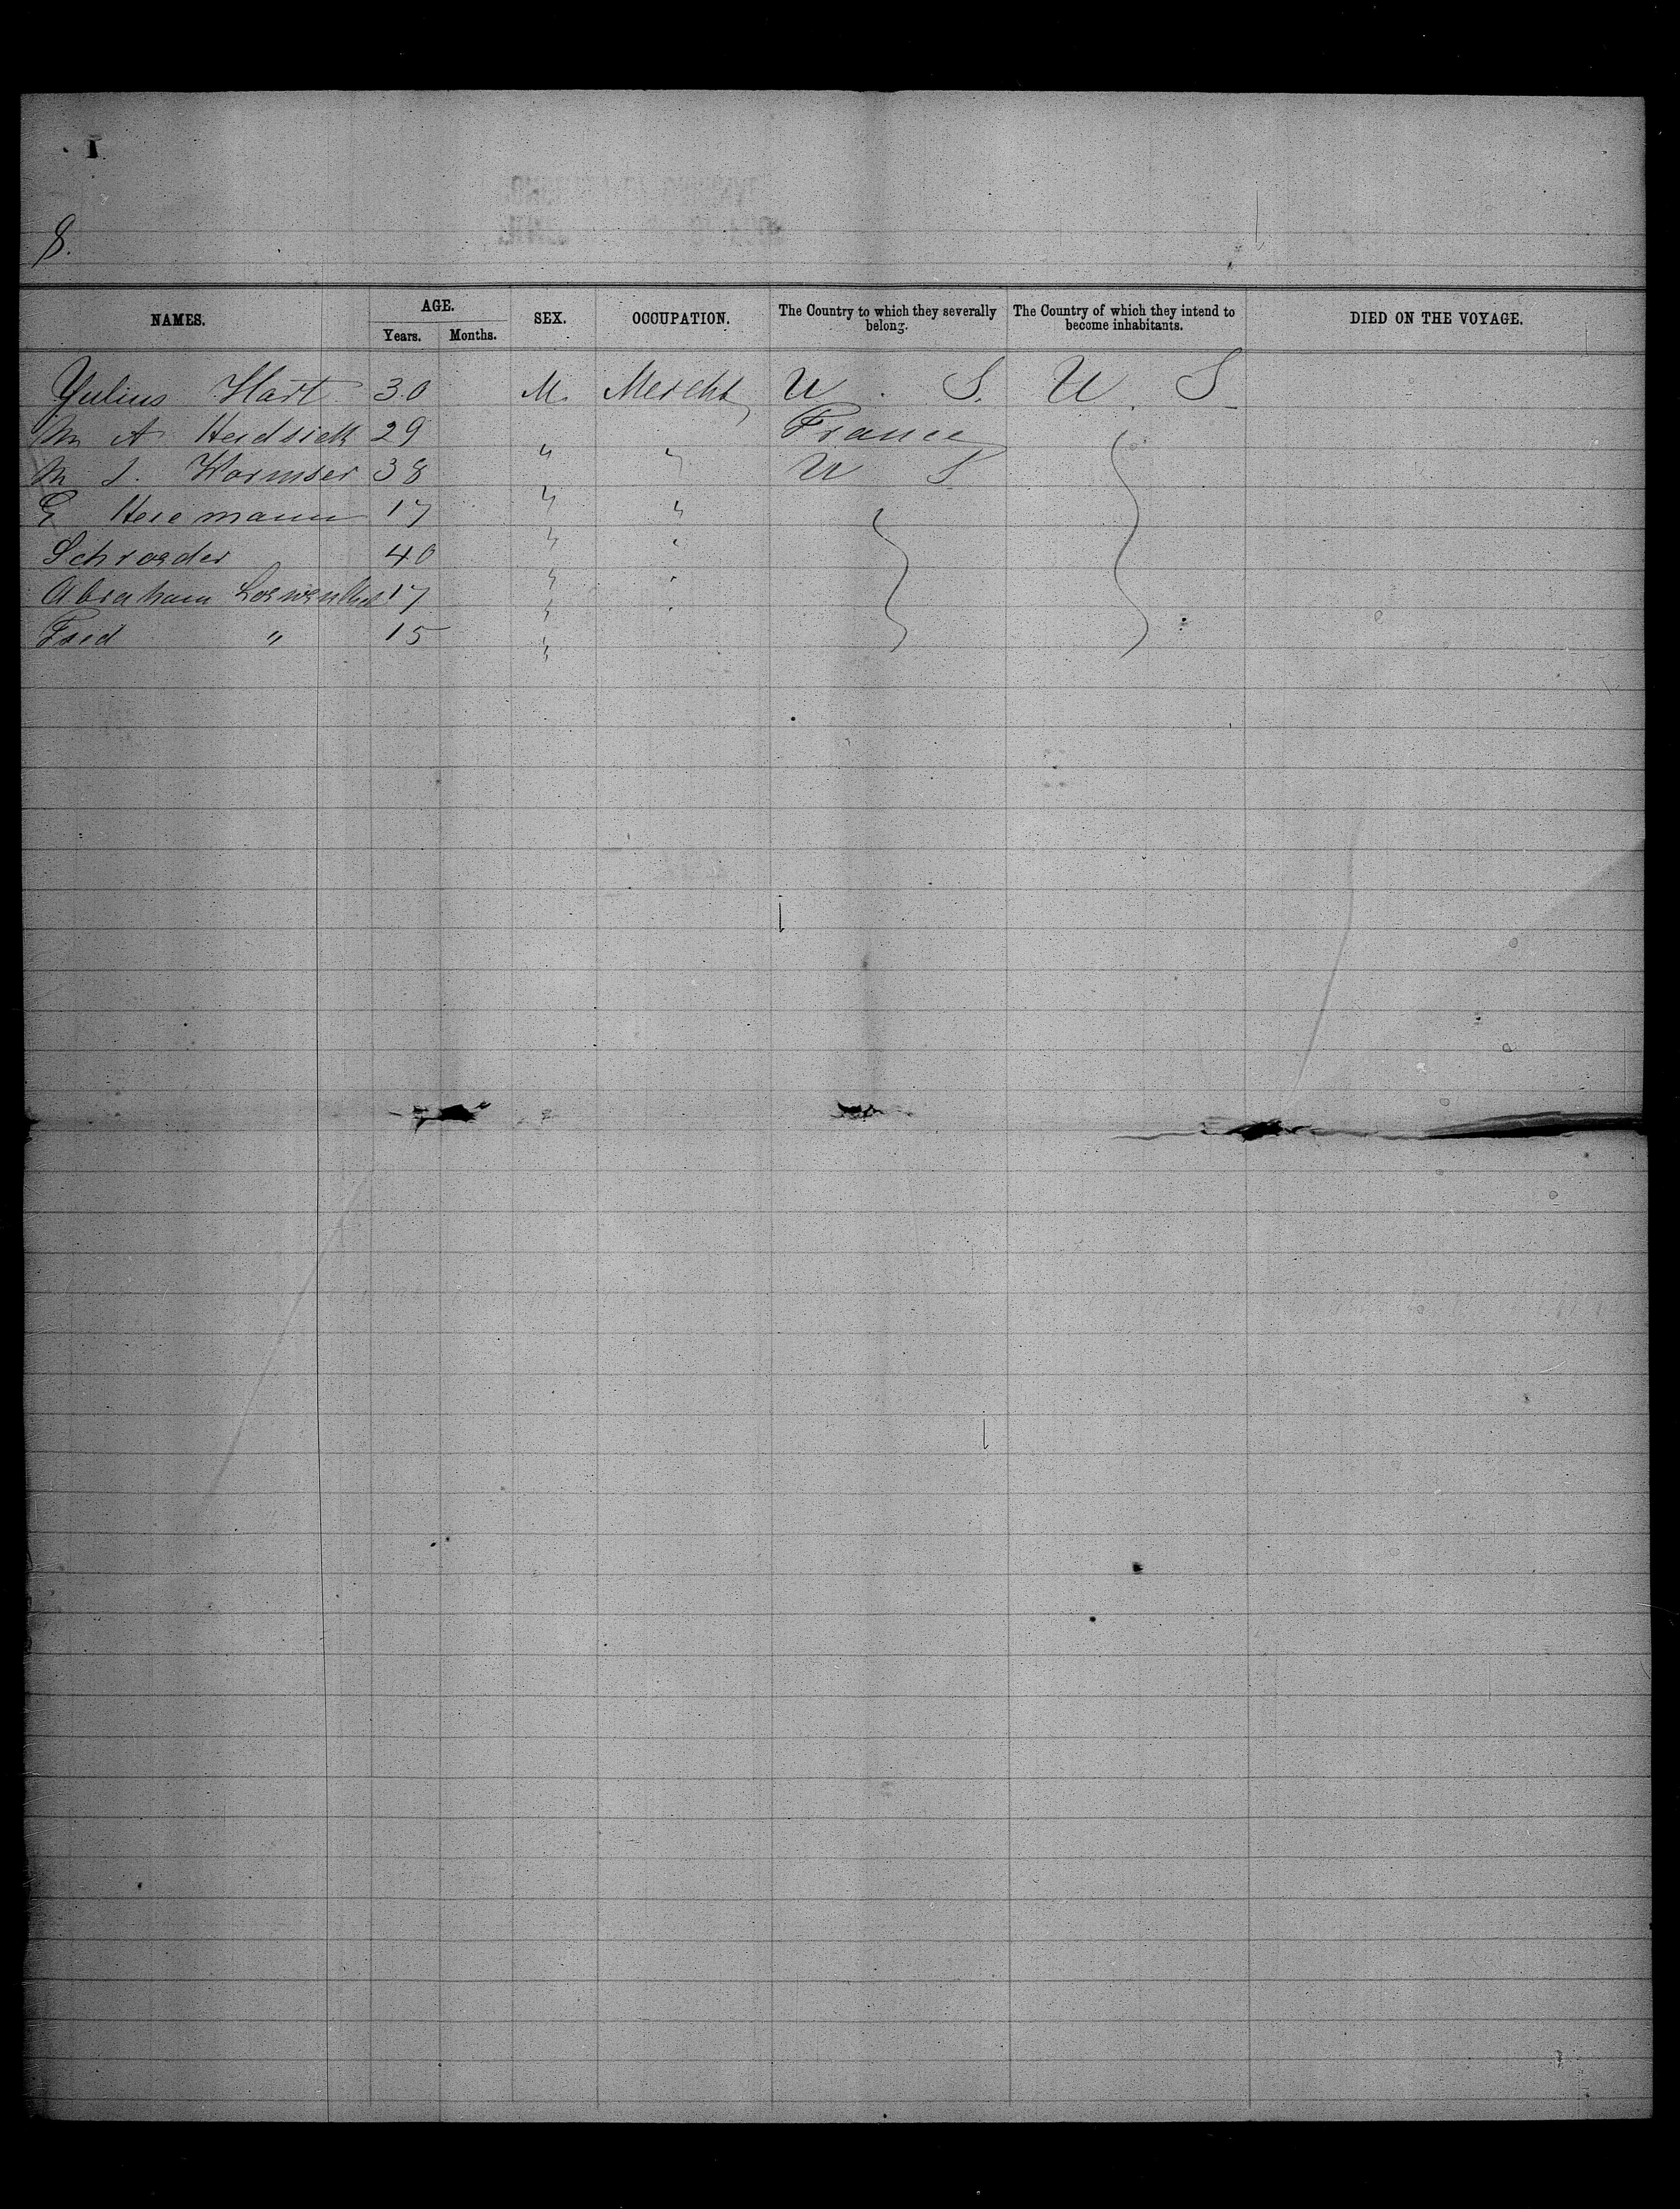 8.
NAMES. AGE. SEX. OCCUPATION. The Country to which they severally belong. The Country of which they intend to become inhabitants. DIED ON THE VOYAGE.
Years. Months.
Yulius Hart 30 M. Mercht U. S. U. S
M A Heidsick 29 " " France
M S. Wormser 38 " " U S
G Heremann 17 " "
Schroeder 40 " "
Abraham 17 " "
Fred " 15 "